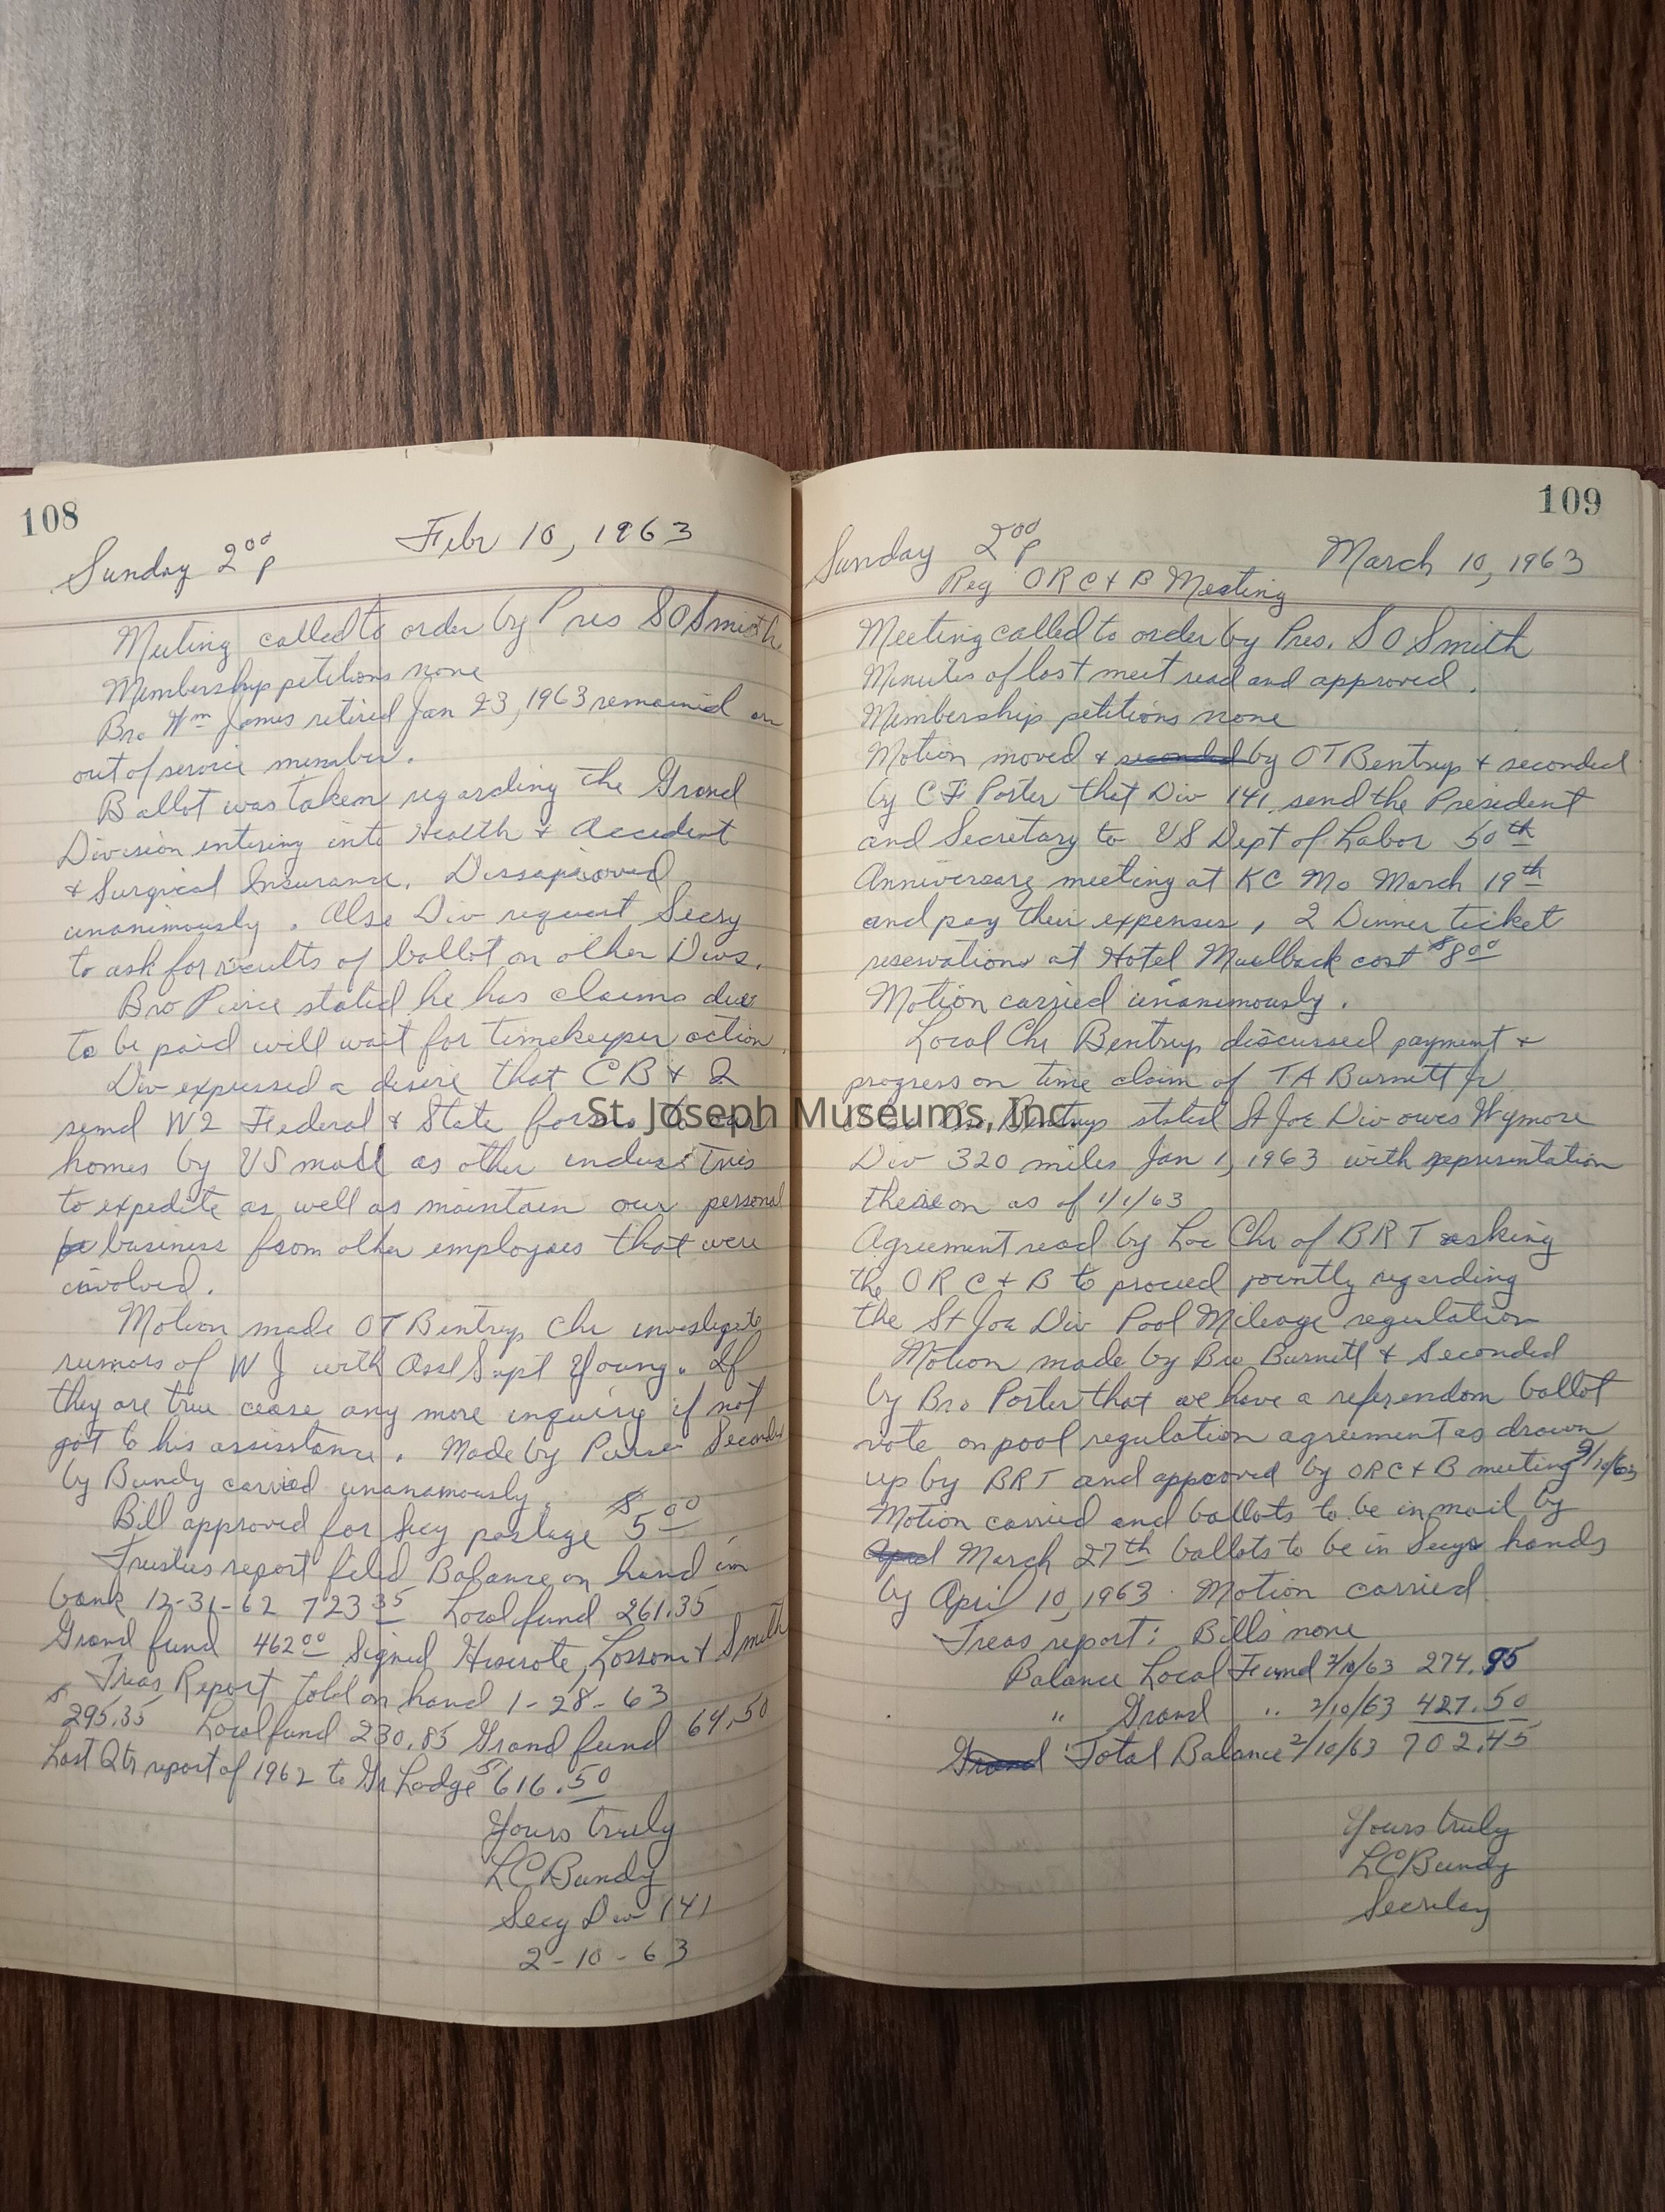 108
Sunday 2 00 P Febr 10, 1963
Meeting called to order by Pres S O Smith
Membership petitions none
Bro. Wm James retired Jan 23, 1963 remained an
out of service member.
Ballot was taken regarding the Grand
Division entering into Health & Accident
& Surgical Insurance. Dissaproved
unanimously. Also Div request Secry
to ask for results of ballot on other Divs.
Bro Pierce stated he has claims due
to be paid will wait for timekeeper action.
Div expressed a desire that CB & Q
send W2 Federal & State forms to our
homes by US mail as other industries
to expedite as well as maintain our personal
business from other employees that were
involved.
Motion made OT Bentrup Chr investigate
rumors of W J with Asst Supt Young. If
they are true cease any more inquiry if not
got to his assistance. Made by Pierce Second
by Bundy carried unanamously.
Bill approved for Secy postage $5 00
Trustees report filed Balance on hand in
bank 12-31-62 723 35 Local fund 261.35
Grand fund 462 00 Signed Hiserote, Lossom & Smith
Treas Report Total on hand 1-28-63
$295.35 Local fund 230.85 Grand fund 64.50
Last Qtr report of 1962 to Gr Lodge $616.50
Yours truly
LC Bundy
Secy Div 141
2-10-63
109
Sunday 2 00 P March 10, 1963
Reg ORC & B Meeting
Meeting called to order by Pres. S O Smith
Minutes of last meet read and approved.
Membership petitions none
Motion moved & seconded by OT Bentrup & seconded
by C F Porter that Div 141 send the President
and Secretary to US Dept of Labor 50th
Anniversary meeting at KC Mo March 19th
and pay their expenses, 2 Dinner ticket
reservations at Hotel Muelback cost $8 00
Motion carried unanimously.
Local Chr Bentrup discussed payment &
progress on time claim of TA Burnett Jr
Bro Bentrup stated St Joe Div owes Wymore
Div 320 miles Jan 1, 1963 with representation
thereon as of 1/1/63
Agreement read by Loc Chr of BRT asking
the ORC & B to proceed jointly regarding
the St Joe Div Pool Mileage regulation
Motion made by Bro Burnett & Seconded
by Bro Porter that we have a referendom ballot
vote on pool regulation agreement as drawn
up by BRT and approved by ORC & B meeting 3/10/63
Motion carried and ballots to be in mail by
April March 27th ballots to be in Secys hands
by April 10, 1963. Motion carried
Treas report: Bills none
Balance Local Fund 2/10/63 274.95
" Grand " 2/10/63 427.50
Grand Total Balance 2/10/63 702.45
Yours truly
LC Bundy
Secretary
St. Joseph Museums, Inc.